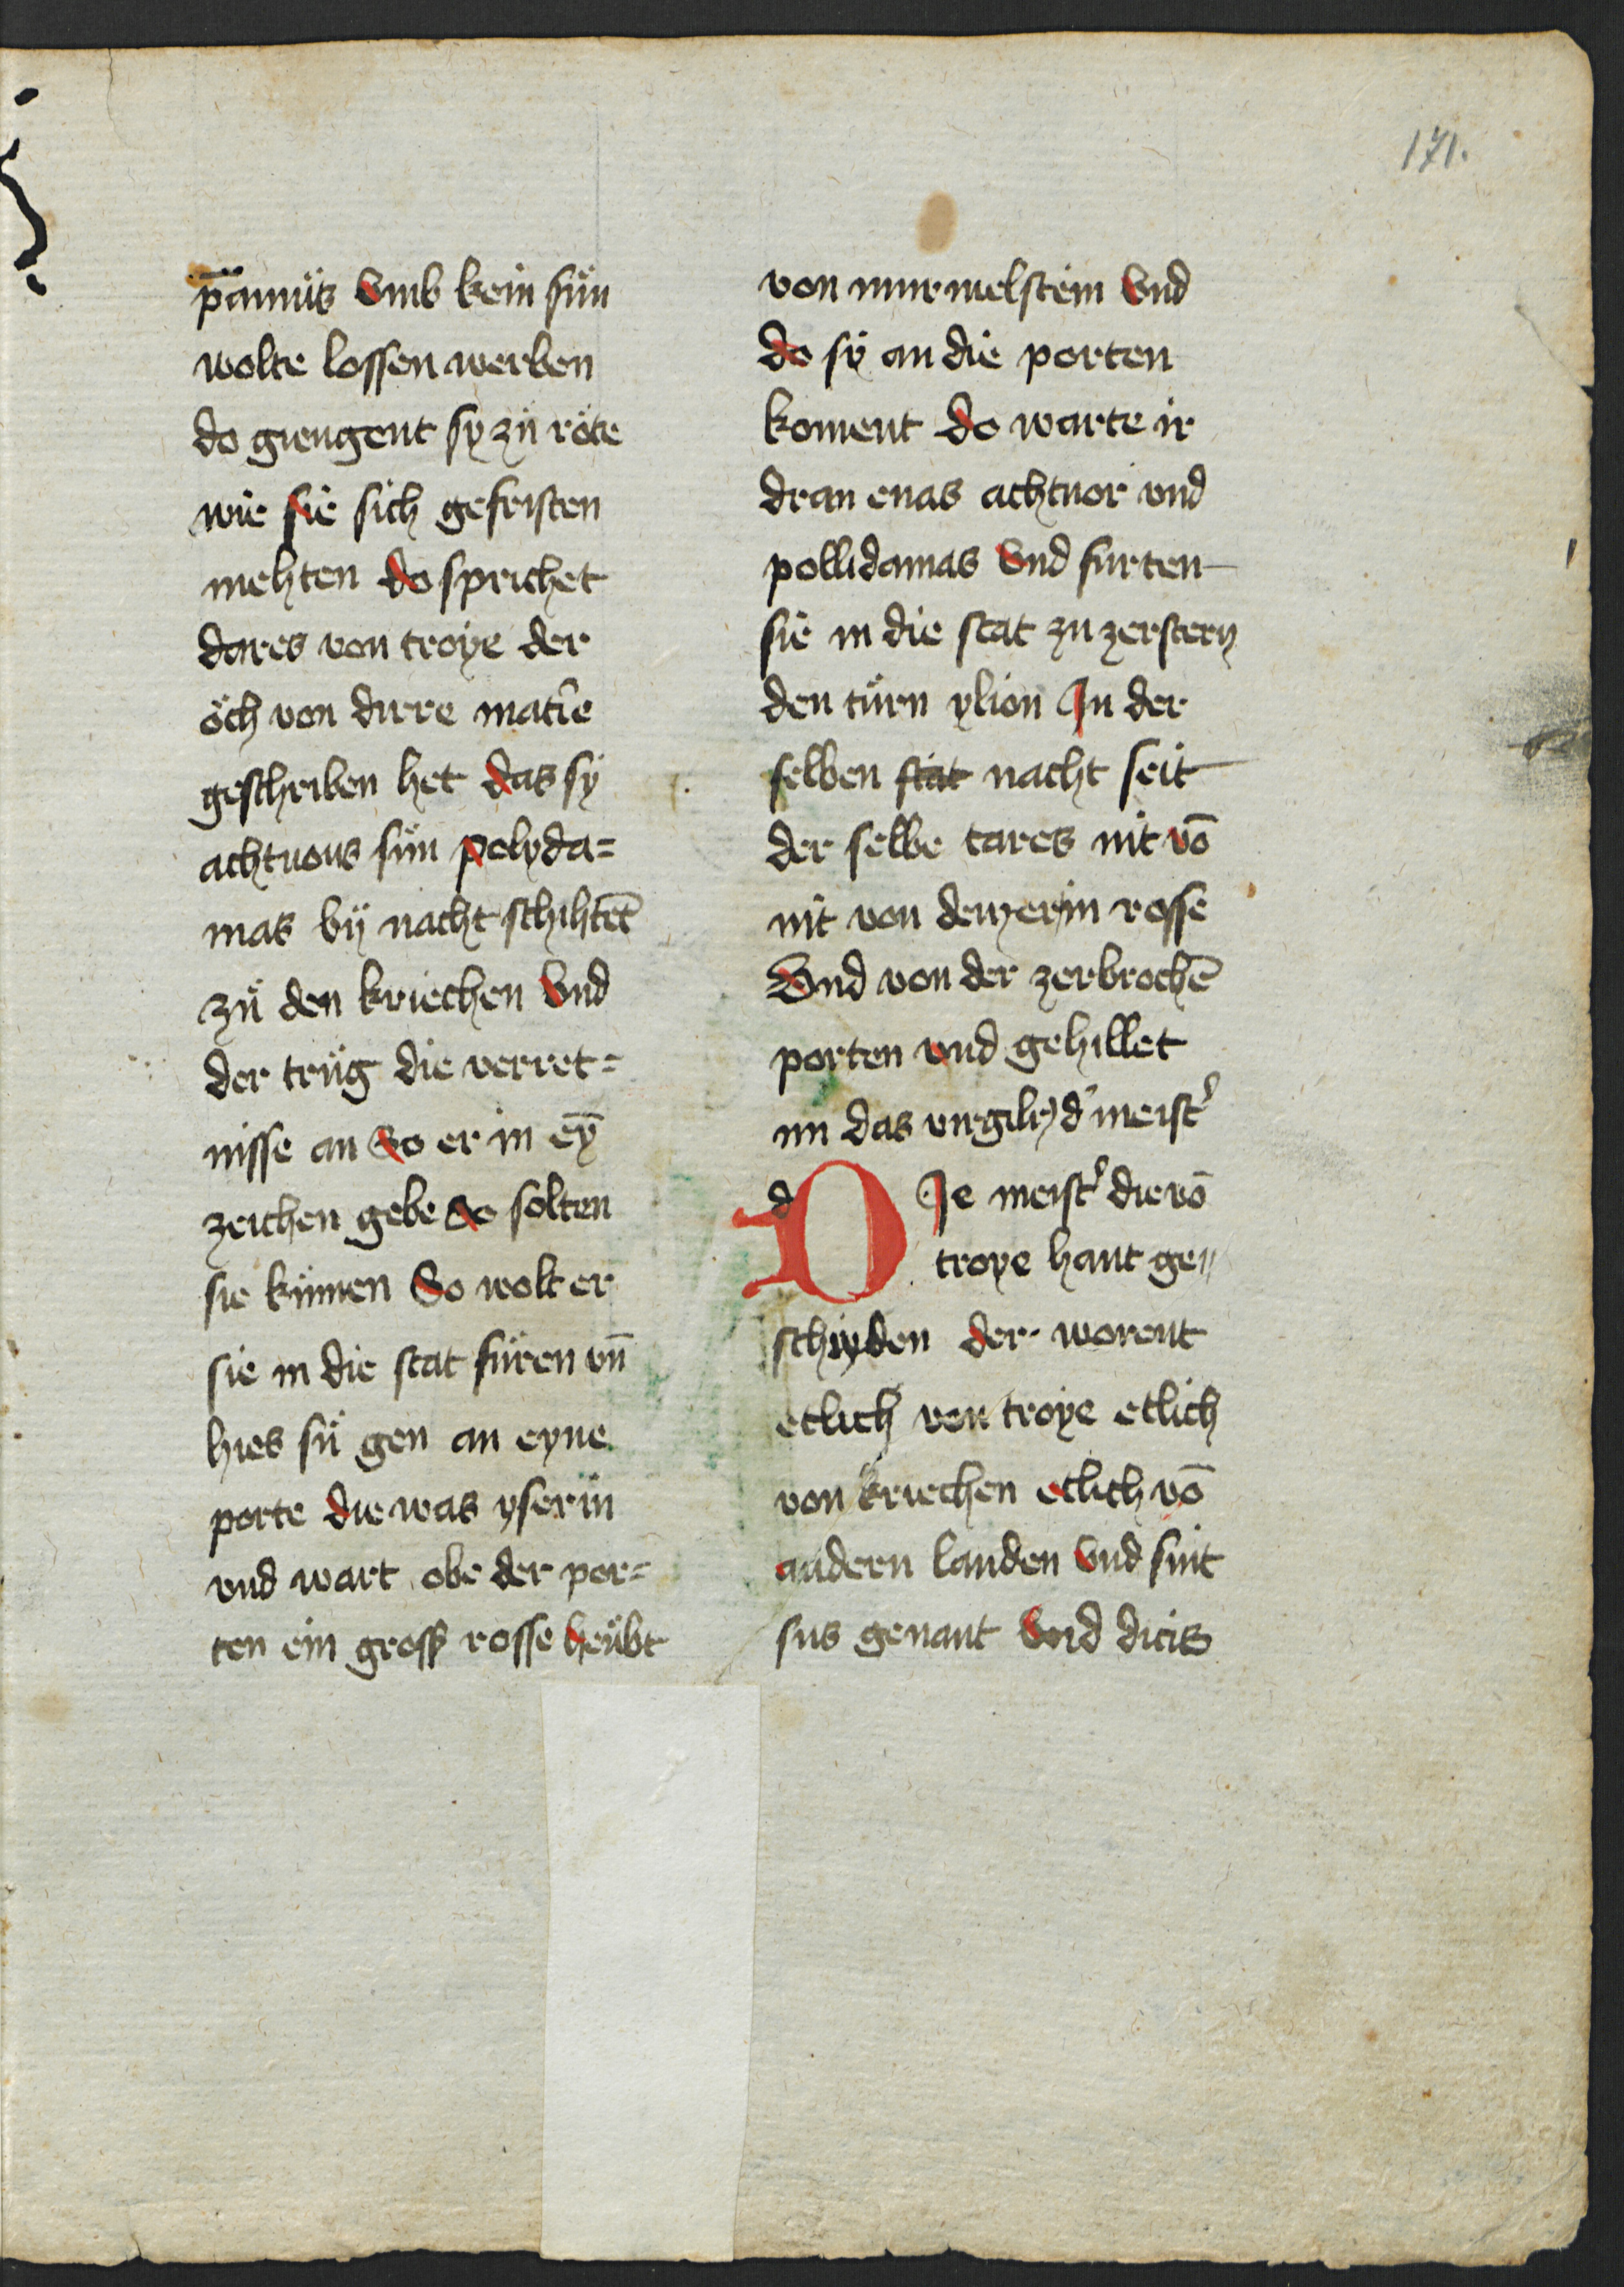 171.
p̄amüs vmb kein sün
wolte lossen werben
do giengent sy zü röte
wie sie sich gefristen
mehten do sprichet
dares von troye der
öch von dirre mat̉ie
geschriben het das sÿ
achtuons sün polyda=
mas bÿ nacht schihtēt
zü den kriechen vnd
der trüg die verret=
nisse an So er in eȳ
zeichen gebe so solten
sie kümen So wolt er
sie in die stat füren vn̄
hies sü gen an eyne
porte die was yserin
vnd wart obe der por=
ten ein gross rosse heübt
von murmelstein vnd
do sÿ an die porten
koment do warte ir
dran enas achtuor vnd
pollidamas vnd furten
sie in die stat zu zerstern
den türn ylion In der
selben stat nacht seit
der selbe tares nit vō
nit von dem erin rosse
Vnd von der zerbrochē
porten vnd gehillet
im das virgili9 d' meist̉
d
D Je meist̉ die vō
troye hant ge=
schriben der worent
etlich von troye etlich
von kriechen etlich vō
andern landen vnd sint
sus genant vnd dicis